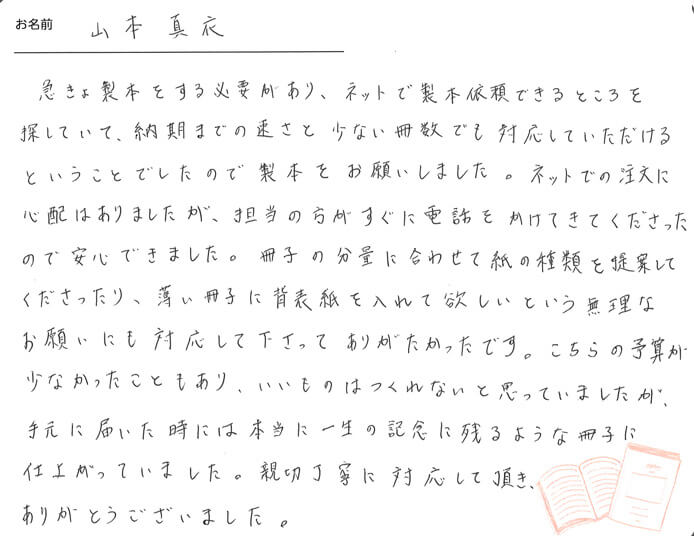 お名前 山本 真衣
急きょ製本をする必要があり、ネットで製本依頼できるところを
探していて、納期までの速さと少ない冊数でも対応していただける
ということでしたので製本をお願いしました。ネットでの注文に
心配はありましたが、担当の方がすぐに電話をかけてきてくださった
ので安心できました。冊子の分量に合わせて紙の種類を提案して
くださったり、薄い冊子に背表紙を入れて欲しいという無理な
お願いにも対応して下さってありがたかったです。こちらの予算が
少なかったこともあり、いいものはつくれないと思っていましたが、
手元に届いた時には本当に一生の記念に残るような冊子に
仕上がっていました。親切丁寧に対応して頂き、
ありがとうございました。